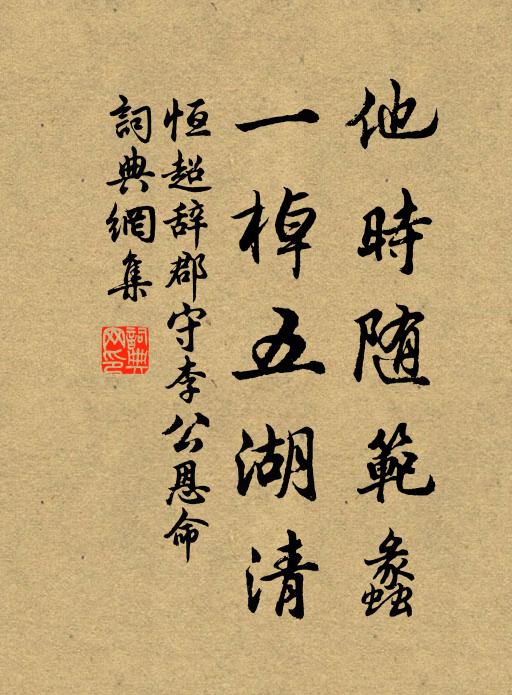 他時随範蠡
一棹五湖清
恒超辞郡守李公恩命
詞典網集
詞典网印